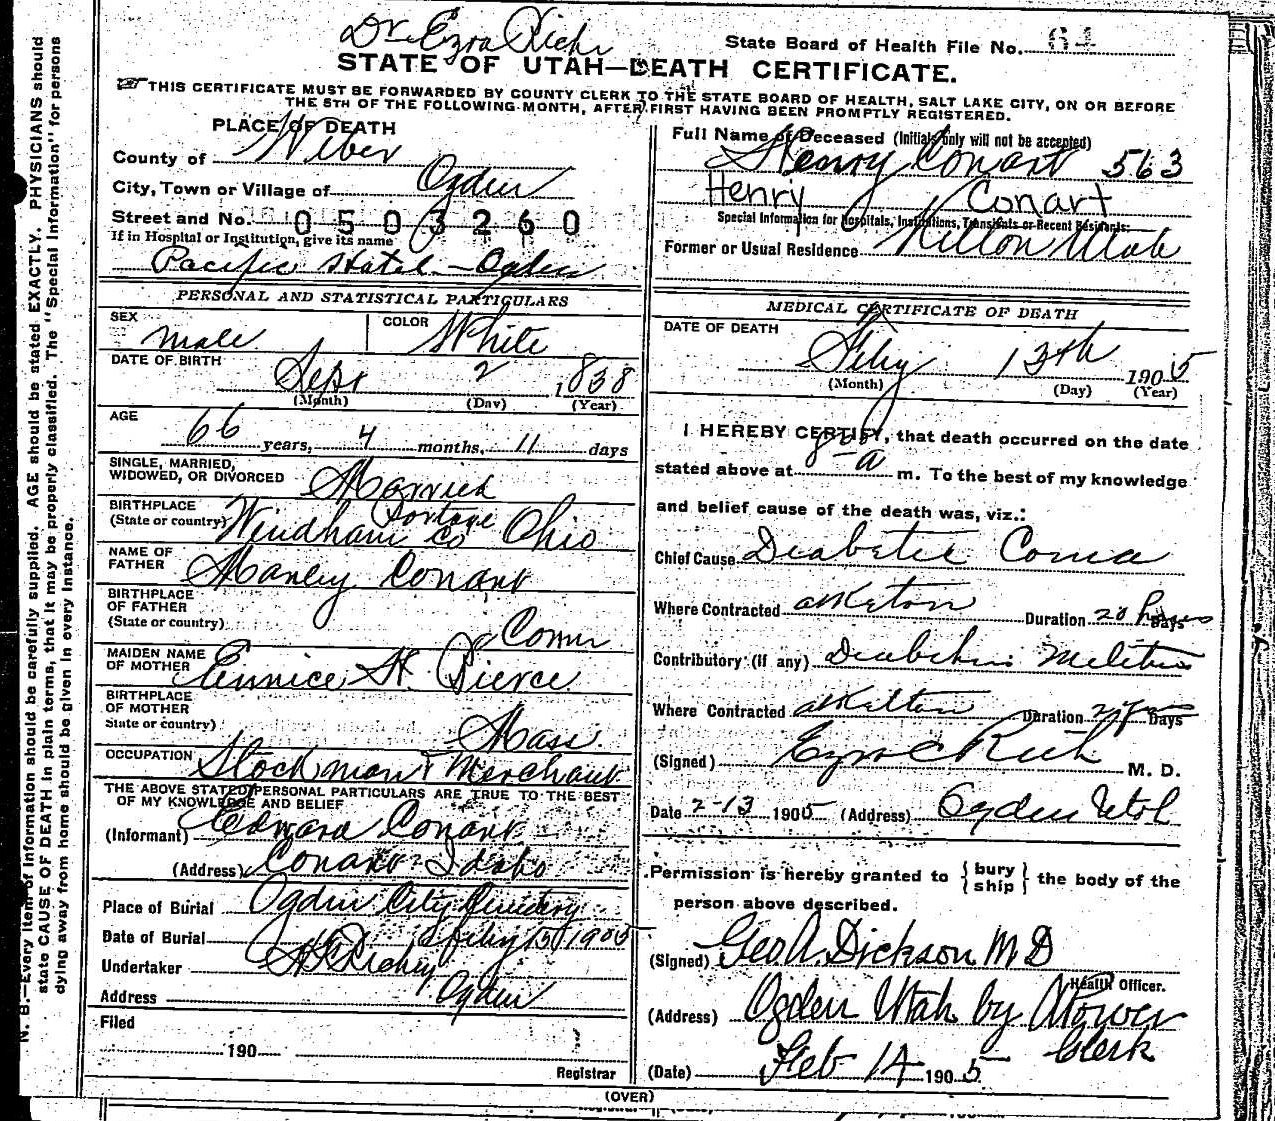 Dr. Ezra Rich
State Board of Health File No. 64
STATE OF UTAH—DEATH CERTIFICATE.
THIS CERTIFICATE MUST BE FORWARDED BY COUNTY CLERK TO THE STATE BOARD OF HEALTH, SALT LAKE CITY, ON OR BEFORE
THE 5TH OF THE FOLLOWING MONTH, AFTER FIRST HAVING BEEN PROMPTLY REGISTERED.
PLACE OF DEATH
County of Weber
City, Town or Village of Ogden
Street and No. 0503260
If in Hospital or Institution, give its name
Pacific Hotel - Ogden
PERSONAL AND STATISTICAL PARTICULARS
SEX male COLOR White
DATE OF BIRTH Sept 2 1838
(Month) (Day) (Year)
AGE
66 years, 4 months, 11 days
SINGLE, MARRIED,
WIDOWED, OR DIVORCED Married
BIRTHPLACE Portage
(State or country) Windham Co Ohio
NAME OF
FATHER Manley Conant
BIRTHPLACE
OF FATHER
(State or country) Conn
MAIDEN NAME
OF MOTHER Eunnice H. Pierce
BIRTHPLACE
OF MOTHER
State or country) Mass.
OCCUPATION Stockman & Merchant
THE ABOVE STATED PERSONAL PARTICULARS ARE TRUE TO THE BEST
OF MY KNOWLEDGE AND BELIEF
(Informant) Edward Conant
(Address) Conant Idaho
Place of Burial Ogden City Cemetery
Date of Burial Feby 15 1905
Undertaker
Address Ogden
Filed
190
Registrar
Full Name of Deceased (Initials only will not be accepted)
Henry Conant 563
Henry Conart
Special Information for Hospitals, Institutions, Transients or Recent Residents:
Former or Usual Residence Kelton Utah
MEDICAL CERTIFICATE OF DEATH
DATE OF DEATH
Feby 13th 1905
(Month) (Day) (Year)
I HEREBY CERTIFY, that death occurred on the date
stated above at a m. To the best of my knowledge
and belief cause of the death was, viz.:
Chief Cause Diabetic Coma
Where Contracted at Kelton Duration 20 hours Days
Contributory (if any) Diabetus Melitus
Where Contracted at Kelton Duration 2 yrs Days
(Signed) Ezra C Rich M. D.
Date 2-13 1905 (Address) Ogden Utah
Permission is hereby granted to {bury
ship} the body of the
person above described.
(Signed) Geo A. Dickson M D
Health Officer.
(Address) Ogden Utah by
Clerk
(Date) Feb 14 1905
(OVER)
N. B.—Every item of information should be carefully supplied. AGE should be stated EXACTLY. PHYSICIANS should
state CAUSE OF DEATH in plain terms, that it may be properly classified. The "Special Information" for persons
dying away from home should be given in every instance.